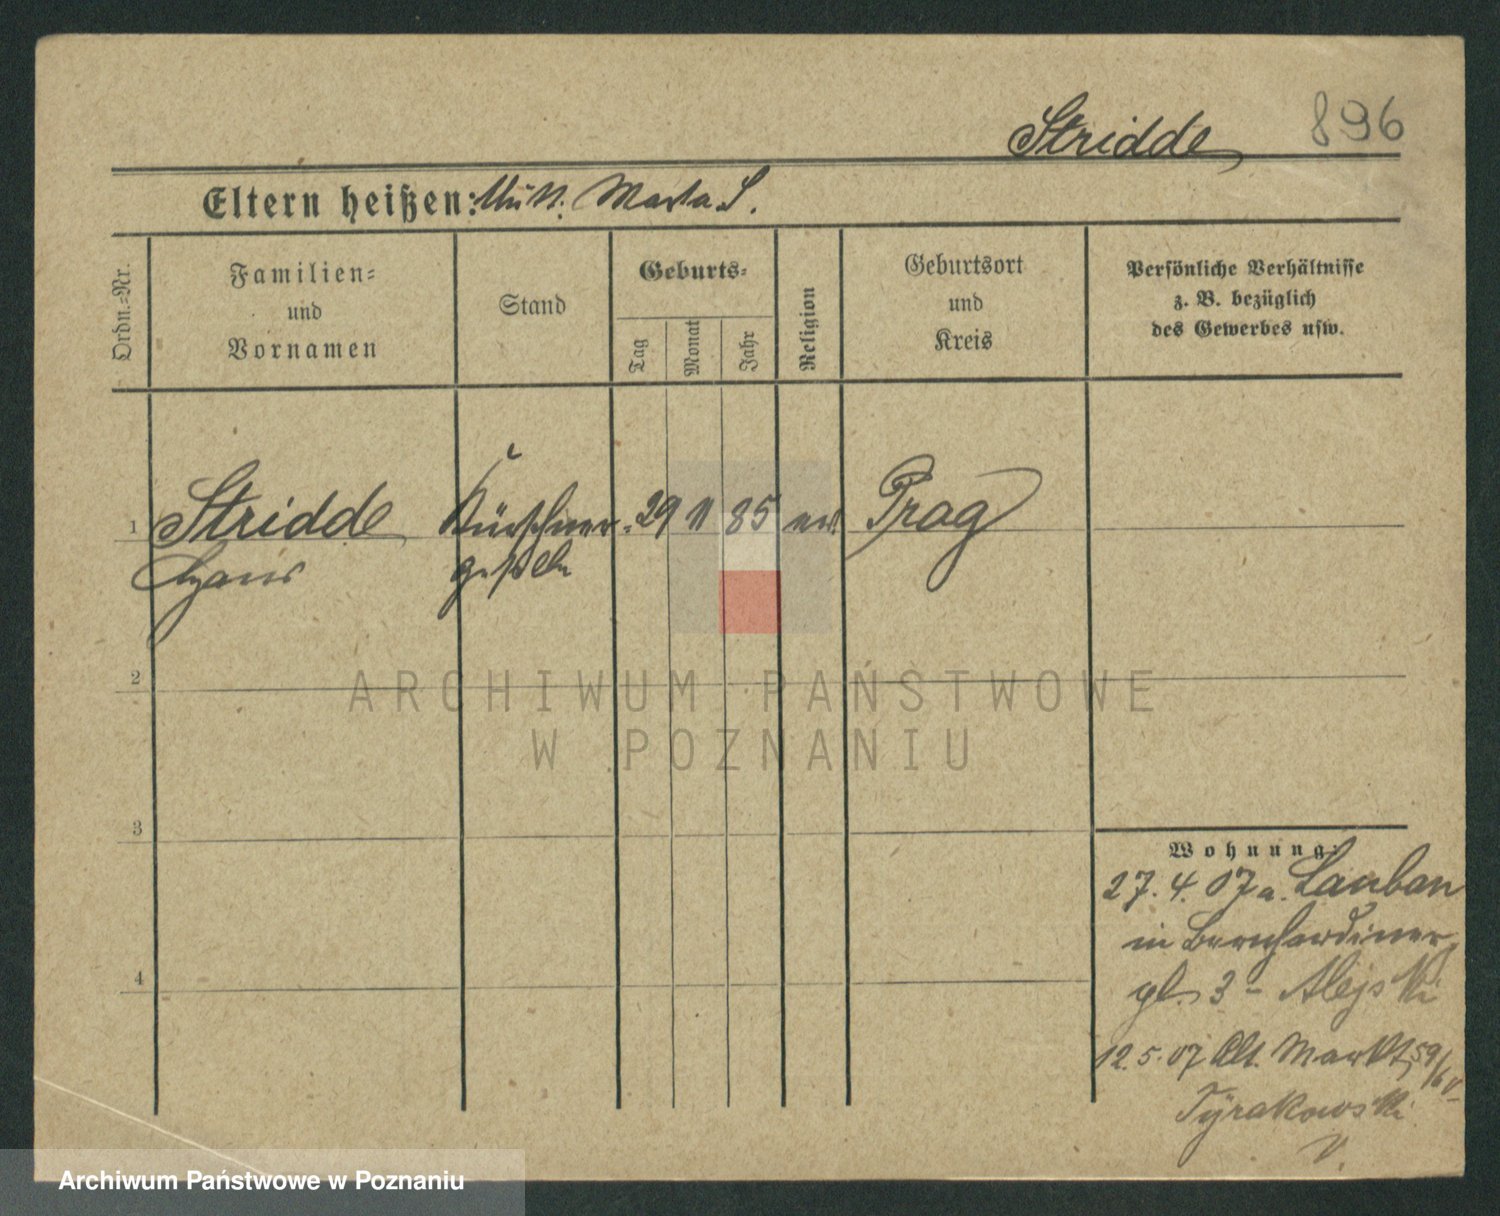 Stridde 896
Eltern heißen: Mutt. Marta S.
Ordn.=Nr.
Familien=
und
Vornamen
Stand
Geburts=
Tag
Monat
Jahr
Religion
Geburtsort
und
Kreis
Persönliche Verhältnisse
z. B. bezüglich
des Gewerbes usw.
1 Stridde Kürschner- 29 11 85 ev. Prag
Hans geselle
2
3
4
Wohnung:
27. 4. 07 a. Lauban
in Bernhardiner
pl. 3 - Alejski
12. 5. 07 Alt. Markt 59/6
Tyrakowski
V.
ARCHIWUM PAŃSTWOWE
W POZNANIU
Archiwum Państwowe w Poznaniu